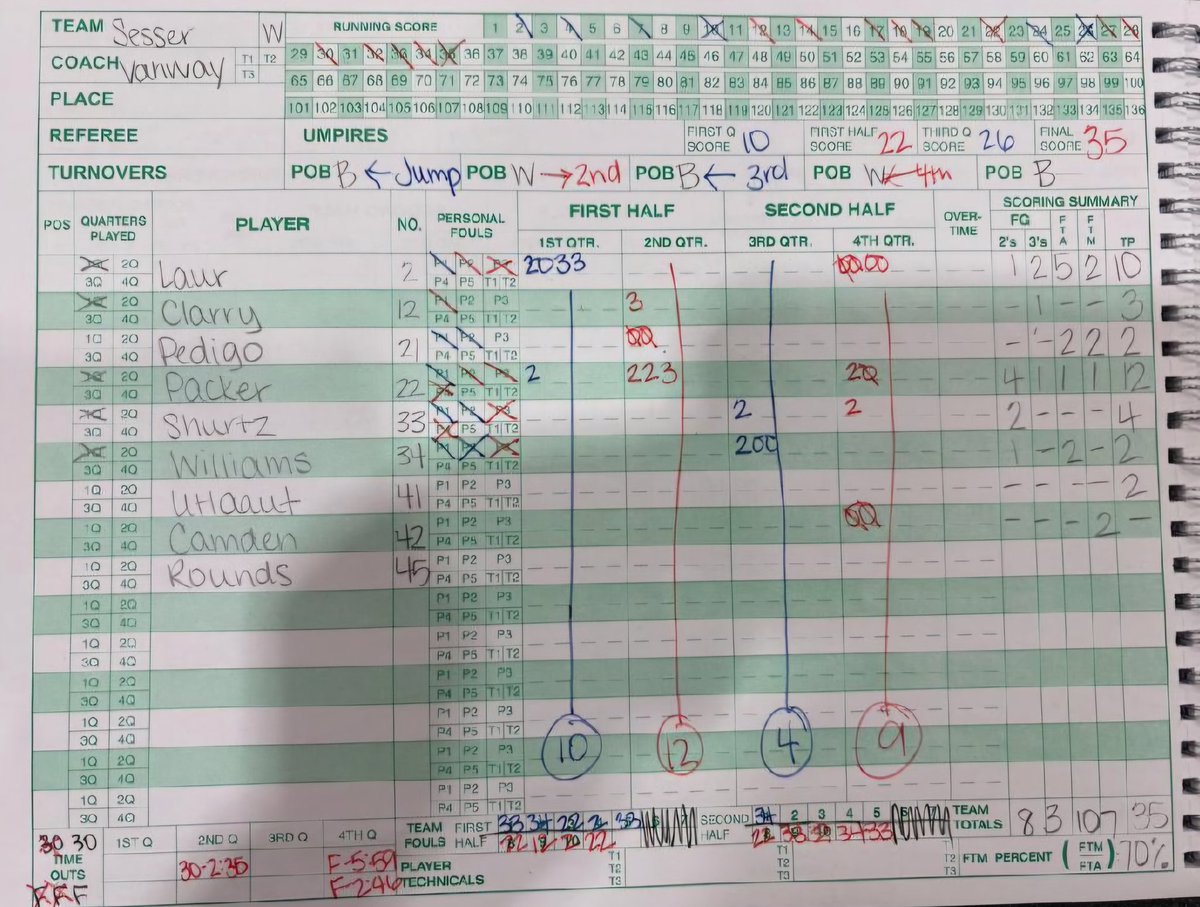 TEAM Sesser W RUNNING SCORE 1 2 3 4 5 6 7 8 9 10 11 12 13 14 15 16 17 18 19 20 21 22 23 24 25 26 27 28
COACH Vanway T1 T2 T3 29 30 31 32 33 34 35 36 37 38 39 40 41 42 43 44 45 46 47 48 49 50 51 52 53 54 55 56 57 58 59 60 61 62 63 64
65 66 67 68 69 70 71 72 73 74 75 76 77 78 79 80 81 82 83 84 85 86 87 88 89 90 91 92 93 94 95 96 97 98 99 100
PLACE 101 102 103 104 105 106 107 108 109 110 111 112 113 114 115 116 117 118 119 120 121 122 123 124 125 126 127 128 129 130 131 132 133 134 135 136
REFEREE UMPIRES FIRST Q SCORE 10 FIRST HALF SCORE 22 THIRD Q SCORE 26 FINAL SCORE 35
TURNOVERS POB B ← Jump POB W → 2nd POB B ← 3rd POB W ← 4th POB B
POS QUARTERS PLAYED PLAYER NO. PERSONAL FOULS FIRST HALF SECOND HALF OVER-TIME SCORING SUMMARY
1ST QTR. 2ND QTR. 3RD QTR. 4TH QTR. FG 2's 3's FTA FTM TP
2Q Laur 2 2033 1 2 5 2 10
3Q 4Q P4 P5 T1 T2
2Q Clarry 12 P2 P3 3 - 1 - - 3
3Q 4Q P4 P5 T1 T2
1Q 2Q Pedigo 21 P3 - - 2 2 2
3Q 4Q P4 P5 T1 T2
2Q Packer 22 2 223 4 1 1 1 12
3Q 4Q P5 T1 T2
2Q Shurtz 33 2 2 2 - - - 4
3Q 4Q P5 T1 T2
2Q Williams 34 200 1 - 2 - 2
3Q 4Q P4 P5 T1 T2
1Q 2Q 41 P1 P2 P3 - - - - 2
3Q 4Q P4 P5 T1 T2
1Q 2Q Camden 42 P1 P2 P3 - - - 2 -
3Q 4Q P4 P5 T1 T2
1Q 2Q Rounds 45 P1 P2 P3
3Q 4Q P4 P5 T1 T2
1Q 2Q P1 P2 P3
3Q 4Q P4 P5 T1 T2
1Q 2Q P1 P2 P3
3Q 4Q P4 P5 T1 T2
1Q 2Q P1 P2 P3
3Q 4Q P4 P5 T1 T2
1Q 2Q P1 P2 P3
3Q 4Q P4 P5 T1 T2
10 12 4 9
1Q 2Q P1 P2 P3
3Q 4Q P4 P5 T1 T2
1Q 2Q P1 P2 P3
3Q 4Q P4 P5 T1 T2
30 30 1ST Q 2ND Q 3RD Q 4TH Q TEAM FOULS FIRST HALF SECOND HALF 2 3 4 5 TEAM TOTALS 8 3 10 7 35
TIME OUTS 30-2:35 F-5:59 PLAYER TECHNICALS T1 T2 T3 T1 T2 T3 T2 T3 FTM PERCENT (FTM/FTA) 70%
F F F F-2:46